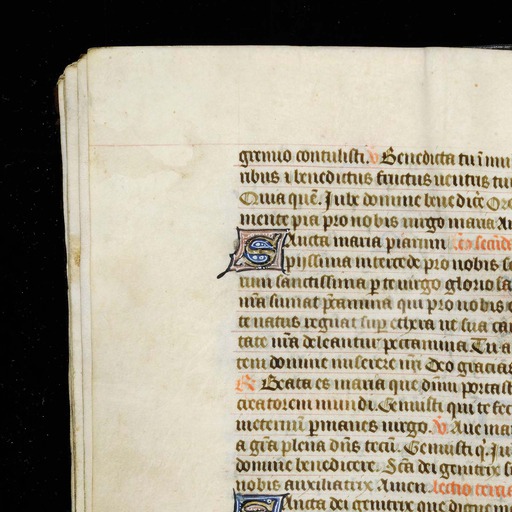 gremio contulisti. v Benedicta tu i mu
ribus ⁊ benedictus fructus ventris tui
Quia quē. Jube domine benedicē Ore
mente pia pro nobis virgo maria A
Sancta maria piarum secūda
piissima intercede pro nobis
tum sanctissima p te virgo gloriosa
nr̄a sumat p̄camina qui pro nobis
te natus regnat sup ethera ut sua
tate nr̄a deleantur peccamina Tu a
tem domine miserere nr̄i Deo gracias
R Beata es maria que dn̄m portast
creatorem mundi. Genuisti qui te fec
ineternū p̄manes virgo. v Aue mar
a gr̄a plena dn̄s tecū. Genuisti q̄. Ju
domine benedicere. Sc̄a dei genitrix s
nobis auxiliatrix Amen. lectio tercia
Sancta dei genitrix que digne m